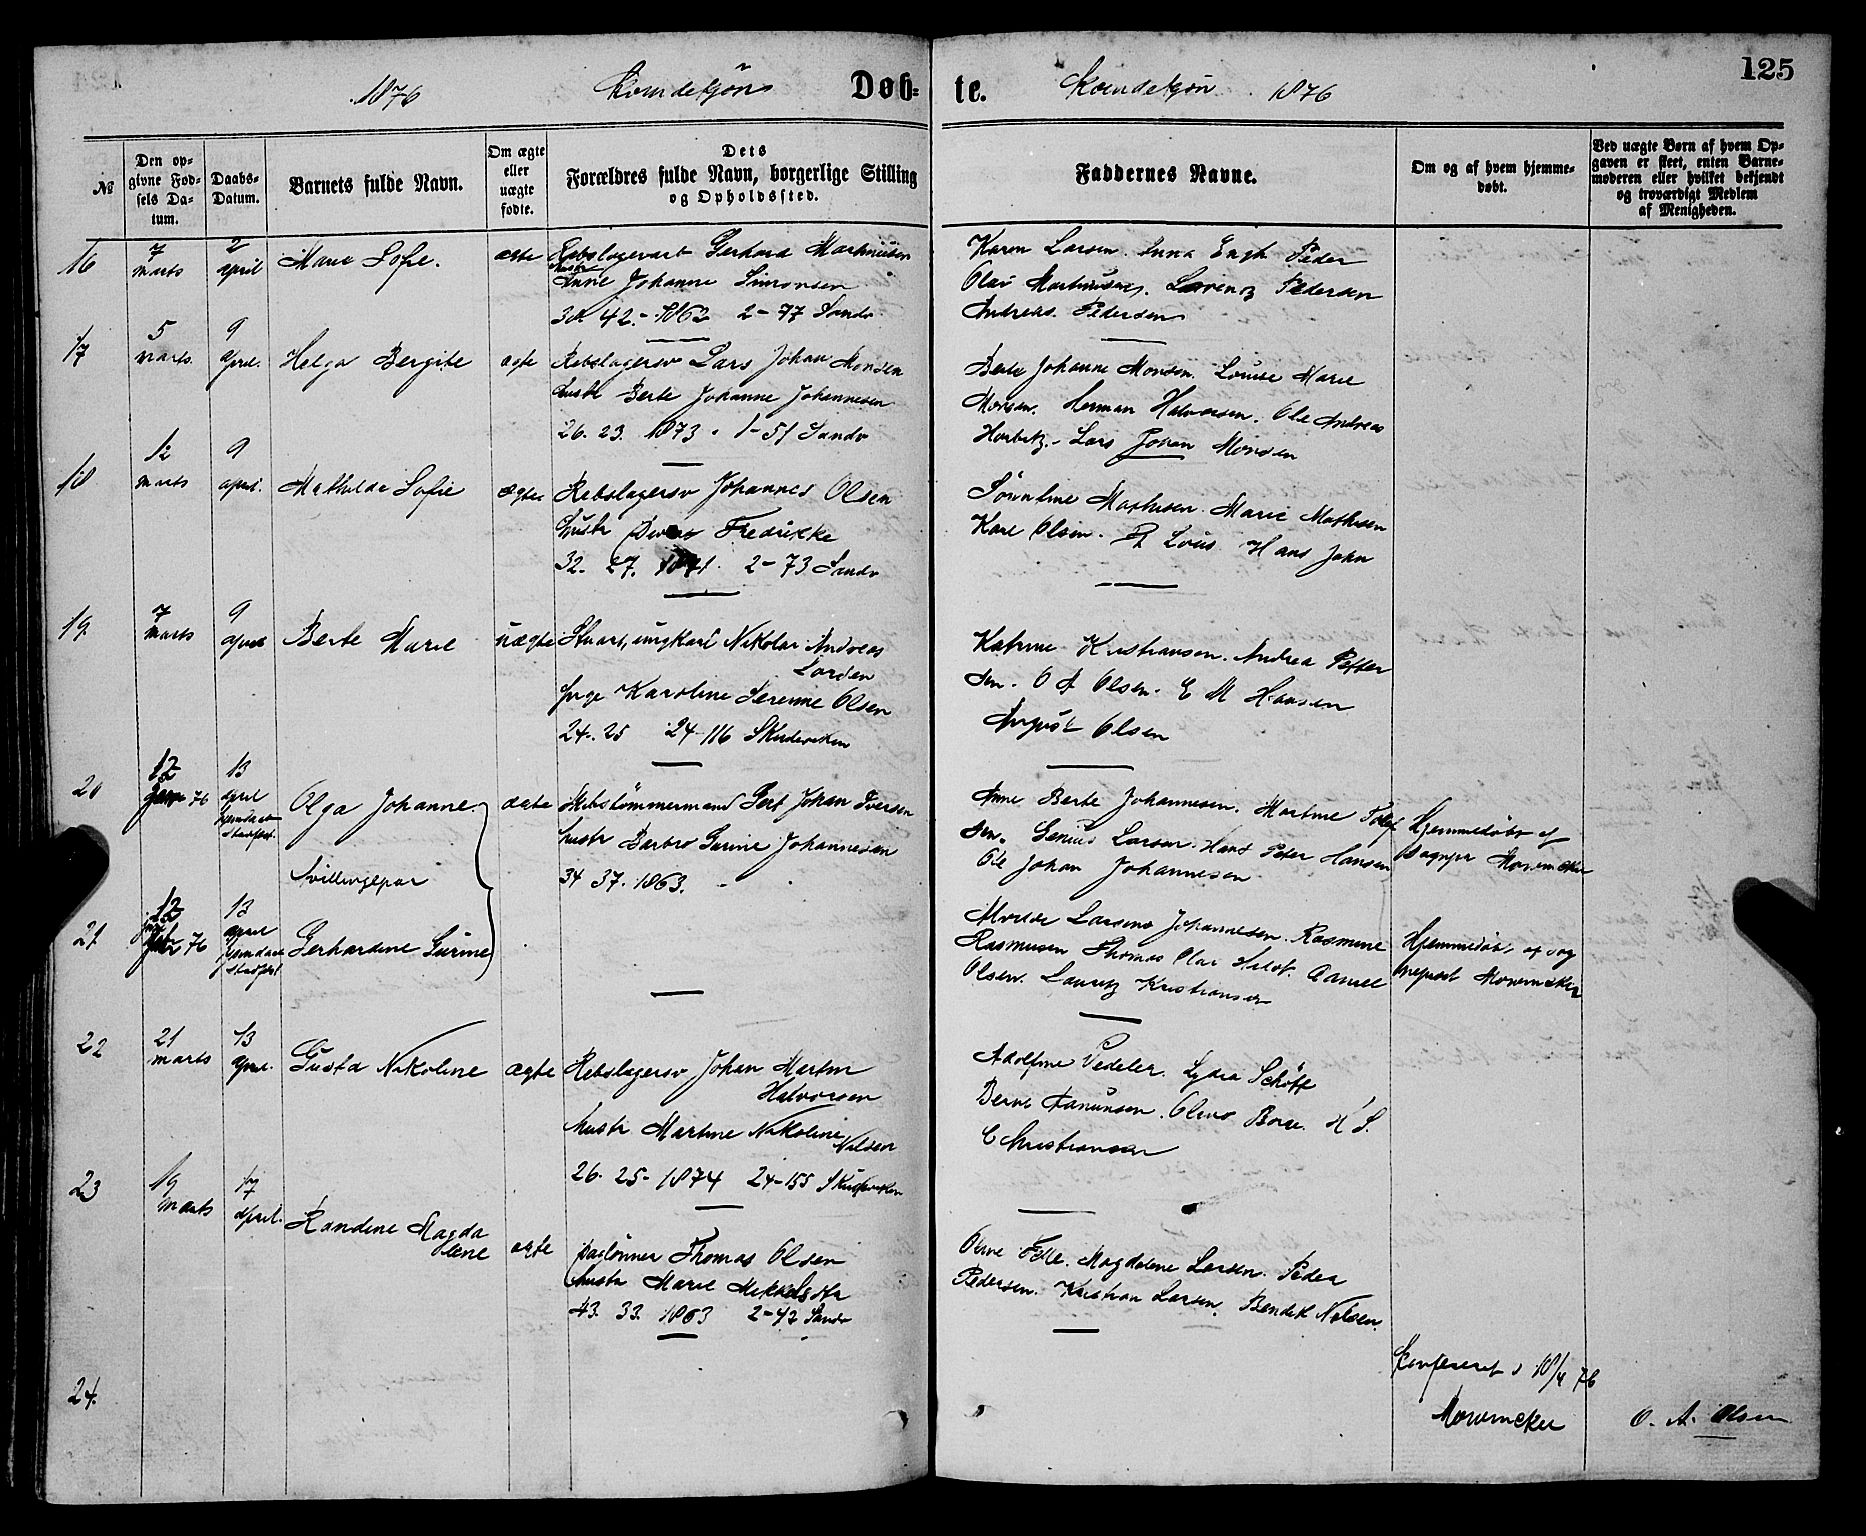 125
1876 Kvindekjøn Døb-
te. Kvindekjøn 1876
№
Den op-
givne Fød-
sels Da-
tum.
Daabs-
Datum.
Barnets fulde Navn.
Om ægte
eller
uægte
fødte.
Dets
Forældres fulde Navn, borgerlige Stilling
og Opholdssted.
Faddernes Navne.
Om og af hvem hjemme-
døbt.
Ved uægte Børn af hvem Op-
gaven er skeet, enten Barne-
moderen eller hvilket bekjendt
og troværdigt Medlem
af Menigheden.
16
7
marts
2
april
Marie Sofie.
ægte
Rebslagersv Gerhard Martinusen
hustr
Anne Johanne Simonsen
30. 42.- 1862 2-77 Sandv.
Karen Larsen. Anna Engh Peder
Olai Martinusen. Lorentz Pedersen
Andreas Pedersen
17
5
marts.
9
April.
Helga Bergite
ægte
Rebslagersv Lars Johan Monsen
hustr Berte Johanne Johannesen
26. 23. 1873. 1-51 Sandv
Berte Johanne Monsen. Louise Marie
Monsen. Herman Halvorsen. Ole Andreas
Lars Johan Monsen
18
12
marts
9
april.
Mathilde Sofie
ægte
Rebslagersv Johannes Olsen
hustr Fredrikke
32. 27. 1871. 2-73 Sandv
Mathisen. Marie Mathisen
Karl Olsen. Hans John
19.
7
marts
9
april
Berte Marie
uægte
Stuart, ungkarl Nikolai Andreas
Larsen
pige Karoline Serine Olsen
24. 25 24-116 Skudeviken
Katrine Kristiansen. Andrea Petter
sen. O A Olsen. E M Hansen
August Olsen
20
12
76
13
april
Olga Johanne
tvillingpar
ægte
Skibstømmermand Gert Johan Iversen
hustr Barbro Gurine Johannesen
34 37. 1863.
Anne Berte Johannesen. Martine
sen. Larsen. Hans Peter Hansen
Ole Johan Johannesen
Hjemmedøbt af
Sognepr Mowinckel
21.
12
76
13
april
Gerhardine Gurine
Larsine Johannesen. Rasmine
Rasmusen Thomas Olai Daniel
Olsen. Lauritz Kristiansen
Hjemmedøbt af sog
nepræst Mowinckel
22
21
marts
13
april.
Gusta Nikoline
ægte
Rebslagersv Johan Martin
Halvorsen
hustr Martine Nikoline
Nilsen
26. 25- 1874 24-155 Skudeviken
Adolfine Vedeler. Lydia
Olsen
Christiansen
23
19
marts
17
April.
Randine Magda
lene
ægte
Daglønner Thomas Olsen
hustr Marie Mikkelsdtr
43. 33. 1863 2-42 Sandv
Magdalene Larsen. Peder
Pedersen. Kristian Larsen. Bendik Nilsen.
24.
Konfereret d 18/4 76
Mowinckel
O. A. Olsen